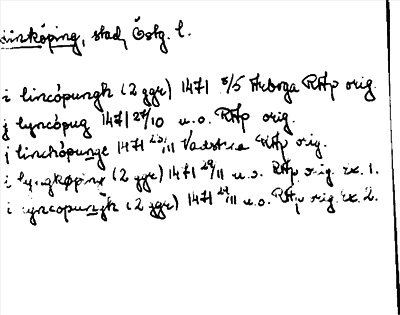 Linköping, stad, Östg. l.
i lincöpungh (2 ggr) 1471 8/5 Arboga RAp orig.
j lyncöpug 1471 27/10 u.o. RAp orig.
j linchöpunge 1471 23/11 Vadstena RAp orig.
i lyngköping (2 ggr) 1471 29/11 u.o. RAp orig. Ex. 1.
i lyncopungh (2 ggr) 1471 29/11 u.o. RAp orig. Ex. 2.